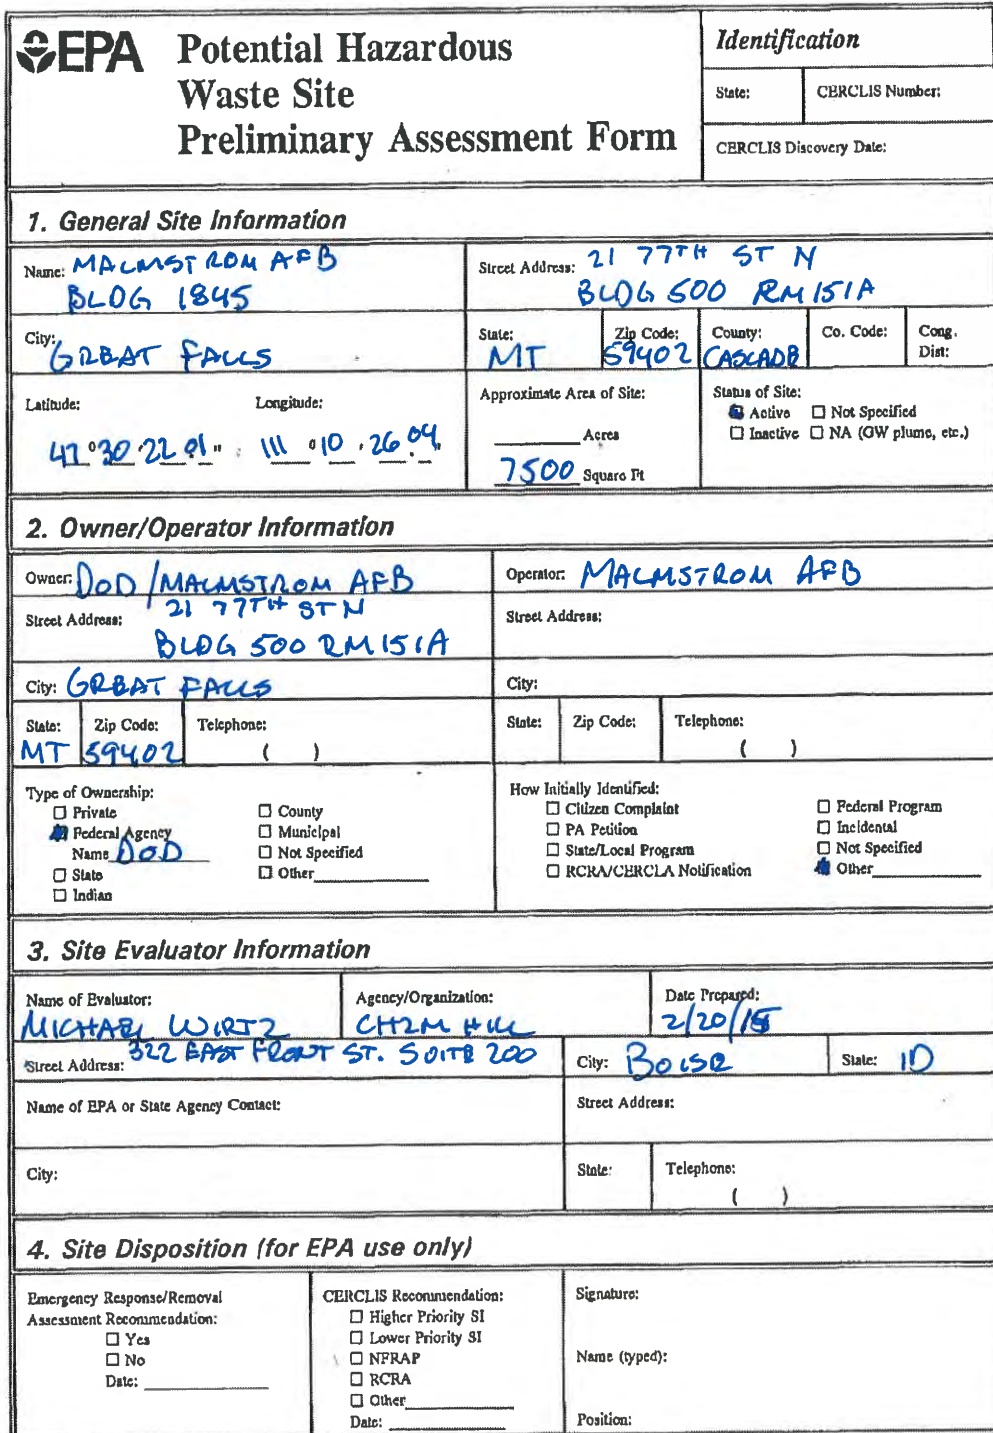 EPA Potential Hazardous
Waste Site
Preliminary Assessment Form
Identification
State: CERCLIS Number:
CERCLIS Discovery Date:
1. General Site Information
Name: MALMSTROM AFB
BLDG 1845
Street Address: 21 77TH ST N
BLDG 500 RM 151A
City: GREAT FALLS
State: MT
Zip Code: 59402
County: CASCADE
Co. Code:
Cong. Dist:
Latitude: Longitude:
47 ° 30 ' 22.01 " 111 ° 10 ' 26.04 "
Approximate Area of Site:
Acres
7500 Square Ft
Status of Site:
Active Not Specified
Inactive NA (GW plume, etc.)
2. Owner/Operator Information
Owner: DOD / MALMSTROM AFB
Street Address: 21 77TH ST N
BLDG 500 RM 151A
City: GREAT FALLS
State: MT
Zip Code: 59402
Telephone: ( )
Operator: MALMSTROM AFB
Street Address:
City:
State: Zip Code: Telephone:
( )
Type of Ownership:
Private
Federal Agency
Name DOD
State
Indian
County
Municipal
Not Specified
Other
How Initially Identified:
Citizen Complaint
PA Petition
State/Local Program
RCRA/CERCLA Notification
Federal Program
Incidental
Not Specified
Other
3. Site Evaluator Information
Name of Evaluator:
MICHAEL WIRTZ
Agency/Organization:
CH2M HILL
Date Prepared:
2/20/15
Street Address: 322 EAST FRONT ST. SUITE 200
City: BOISE
State: ID
Name of EPA or State Agency Contact:
Street Address:
City:
State: Telephone:
( )
4. Site Disposition (for EPA use only)
Emergency Response/Removal
Assessment Recommendation:
Yes
No
Date:
CERCLIS Recommendation:
Higher Priority SI
Lower Priority SI
NFRAP
RCRA
Other
Date:
Signature:
Name (typed):
Position: